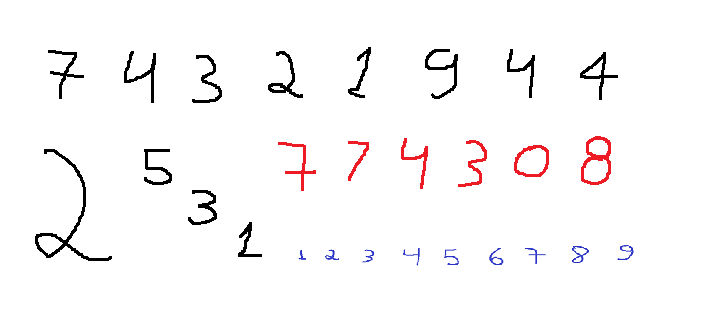 7 4 3 2 1 9 4 4
2 5 3 1 7 7 4 3 0 8
1 2 3 4 5 6 7 8 9